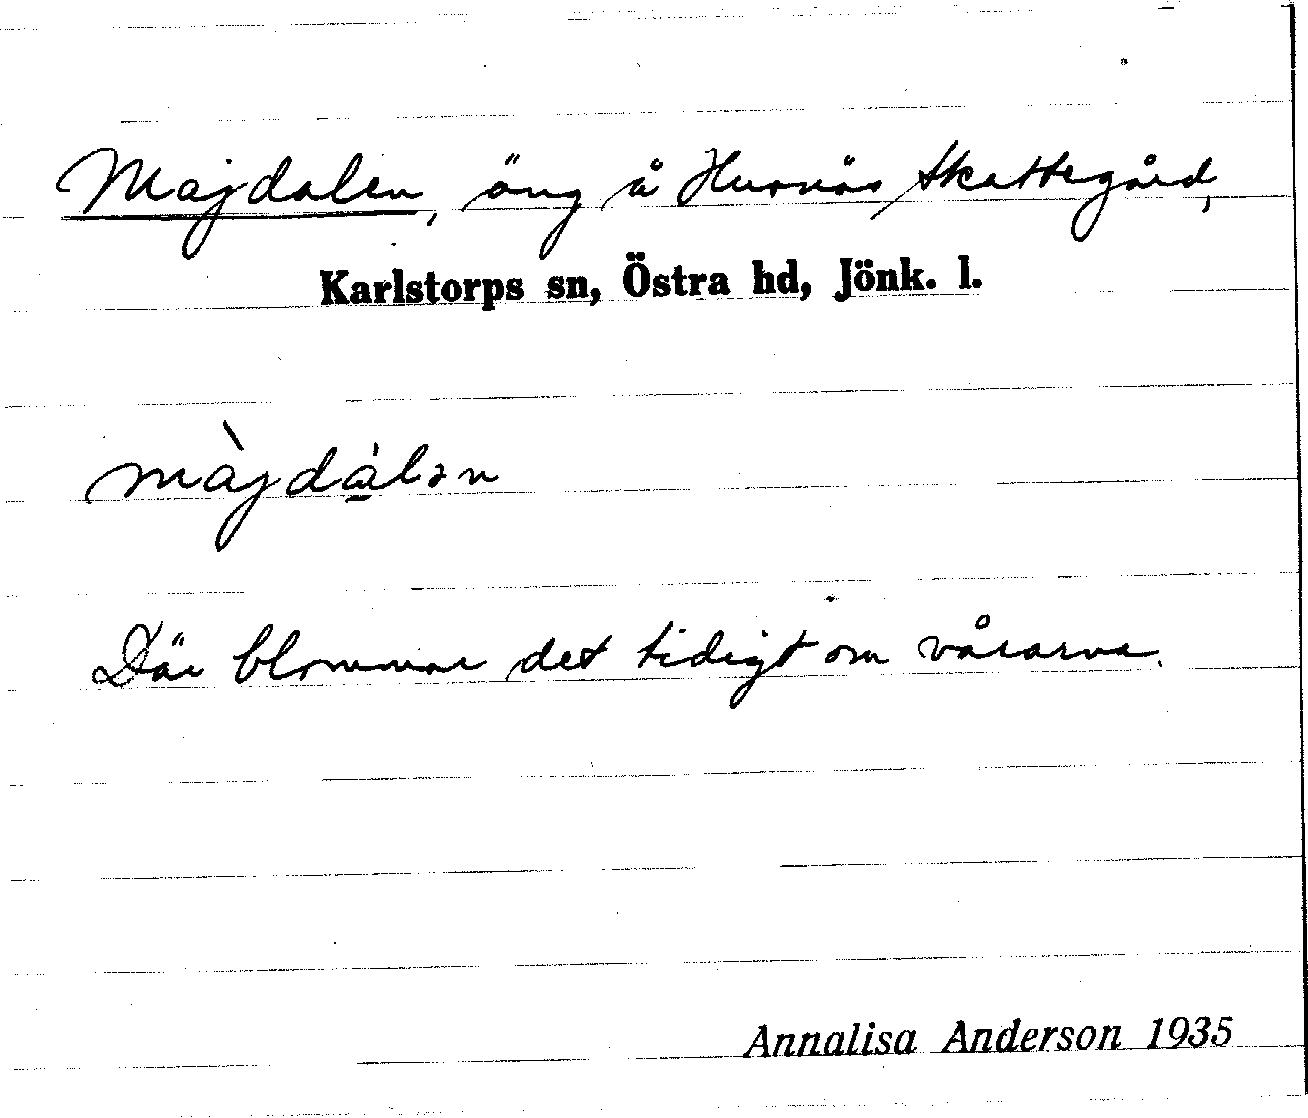 Majdalen, äng å Hursnäs Skattegård,
Karlstorps sn, Östra hd, Jönk. l.
màjdàlən
Där blommar det tidigt om vårarna.
Annalisa Anderson 1935